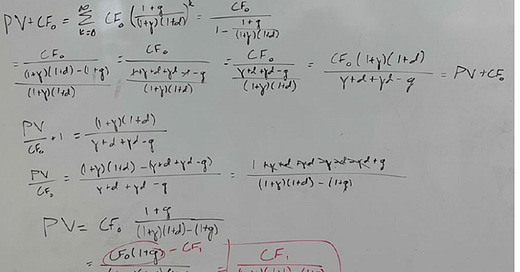 PV + CF₀ = ∞ Σ k=0 CF₀ ( (1+g) / ((1+y)(1+d)) )^k = CF₀ / (1 - (1+g) / ((1+y)(1+d)))
= CF₀ / (((1+y)(1+d) - (1+g)) / ((1+y)(1+d))) = CF₀ / ((1+y+d+yd-1-g) / ((1+y)(1+d))) = CF₀ / ((y+d+yd-g) / ((1+y)(1+d))) = CF₀ (1+y)(1+d) / (y+d+yd-g) = PV + CF₀
PV / CF₀ + 1 = (1+y)(1+d) / (y+d+yd-g)
PV / CF₀ = ((1+y)(1+d) - (y+d+yd-g)) / (y+d+yd-g) = (1+y+d+yd-y-d-yd+g) / ((1+y)(1+d) - (1+g))
PV = CF₀ (1+g) / ((1+y)(1+d) - (1+g))
= CF₀(1+g) - CF₁ = CF₁